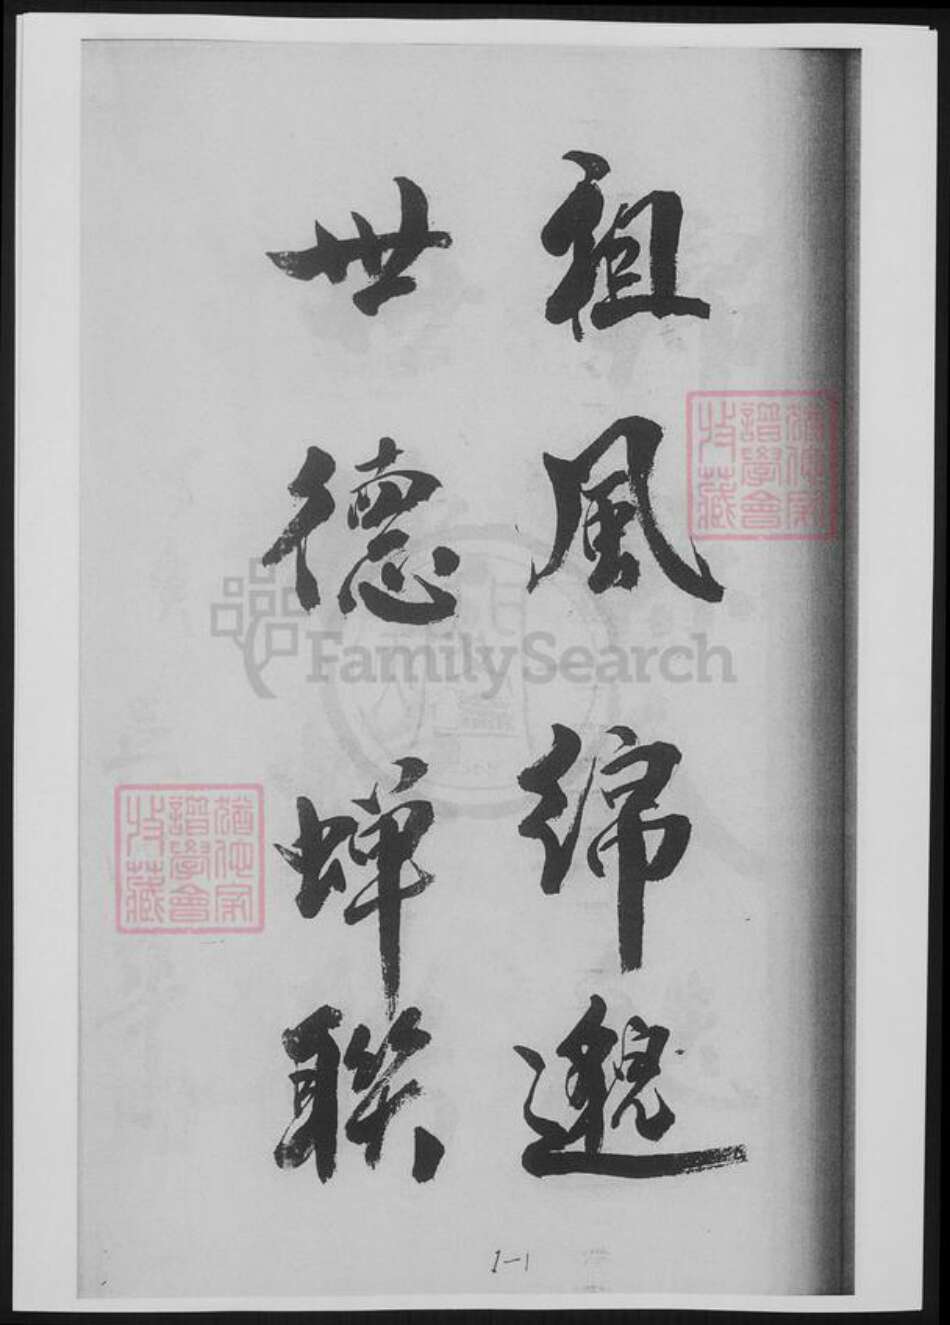 祖風綿邈
世德蟬聯
譜學會
收藏
譜學會
收藏
FamilySearch
1-1